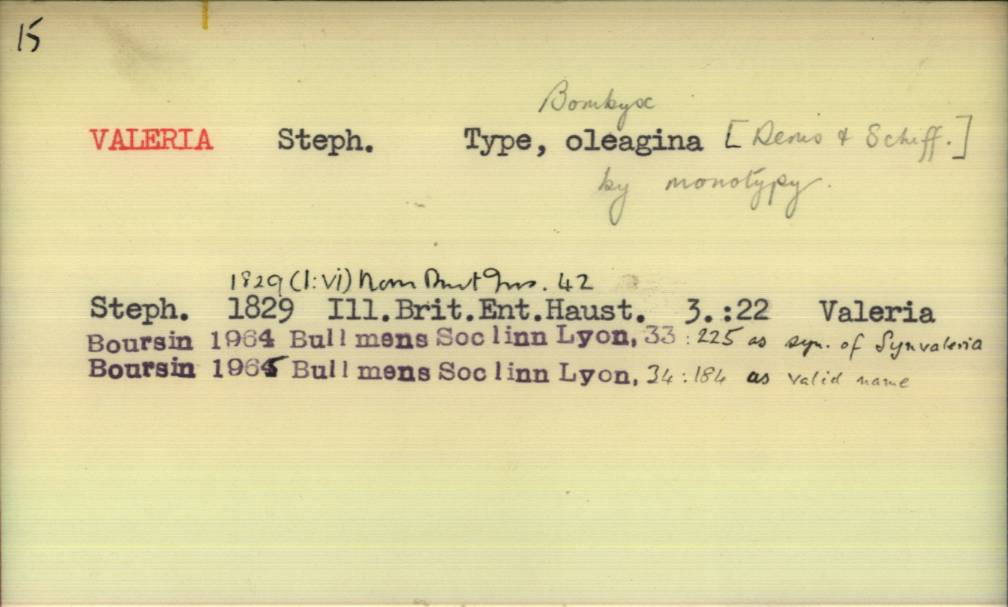 15
Bombyx
VALERIA Steph. Type, oleagina [Denis & Schiff.]
by monotypy.
1829 (1:vi) Nom Brit Ins. 42
Steph. 1829 Ill.Brit.Ent.Haust. 3.:22 Valeria
Boursin 1964 Bull mens Soc linn Lyon, 33:225 as syn. of Synvaleria
Boursin 1965 Bull mens Soc linn Lyon, 34:184 as valid name